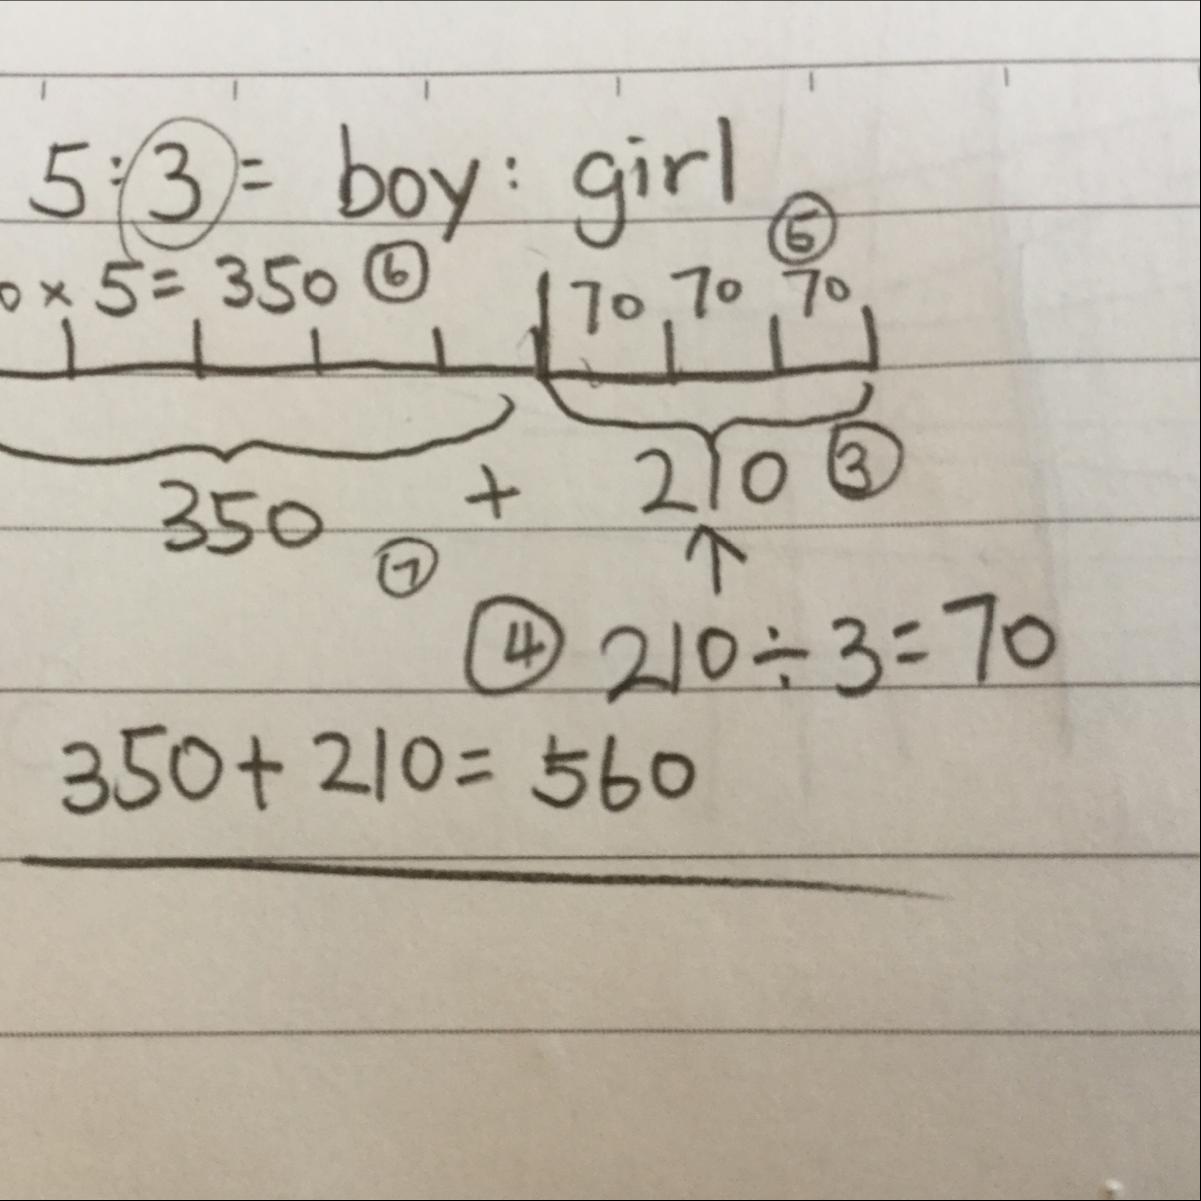 5:3= boy: girl
0 x 5= 350 ⑥ 70 70 70 ⑤
350 + 210 ③
⑦
④ 210÷3=70
350+210= 560